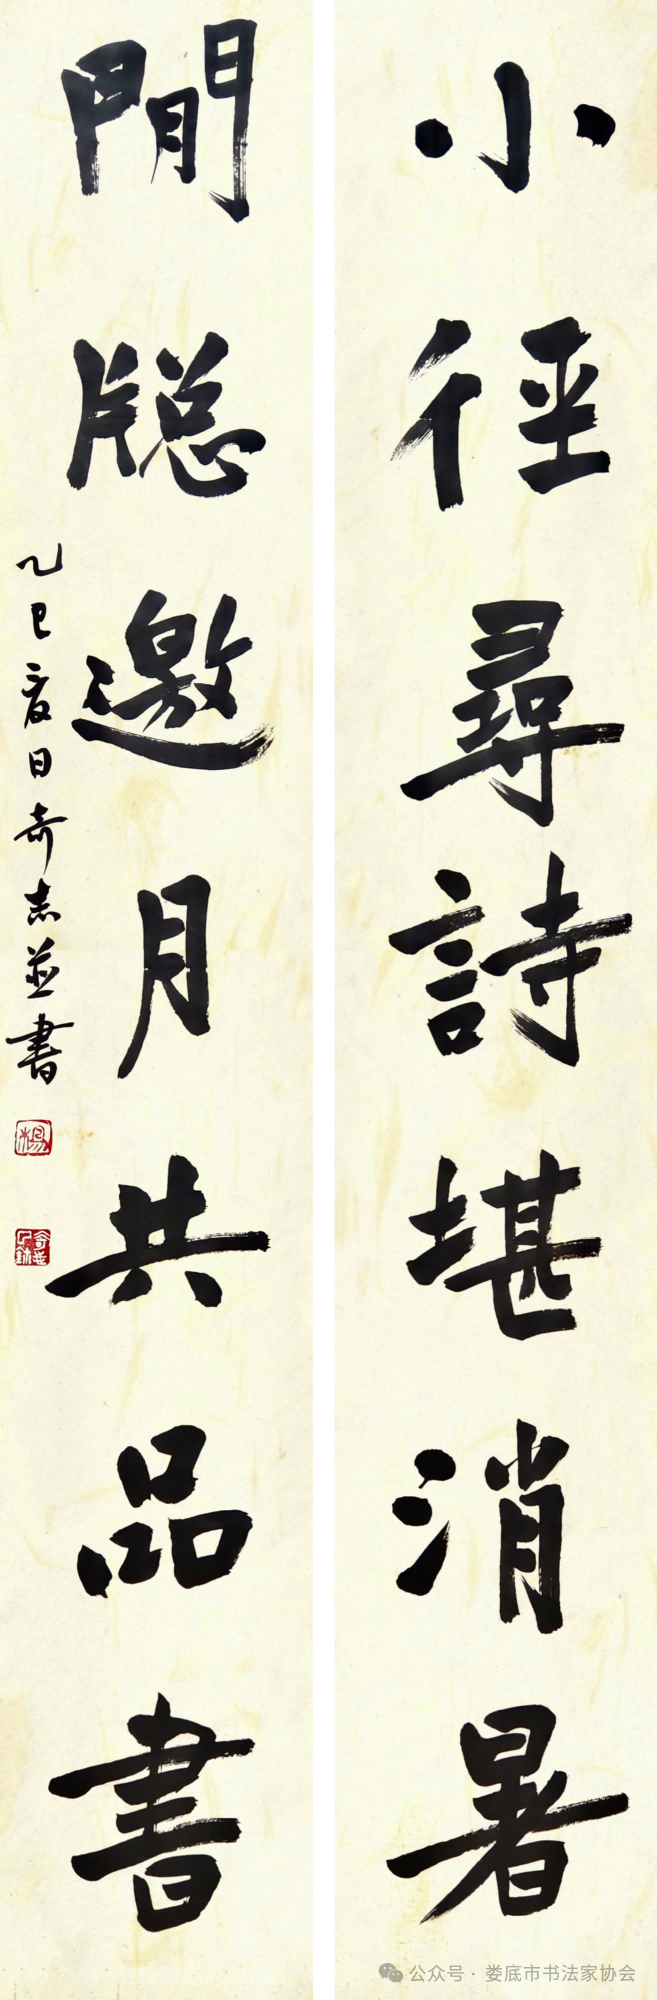 小徑尋詩堪消暑
閒牕邀月共品書
乙巳夏日奇志並書
公众号·娄底市书法家协会